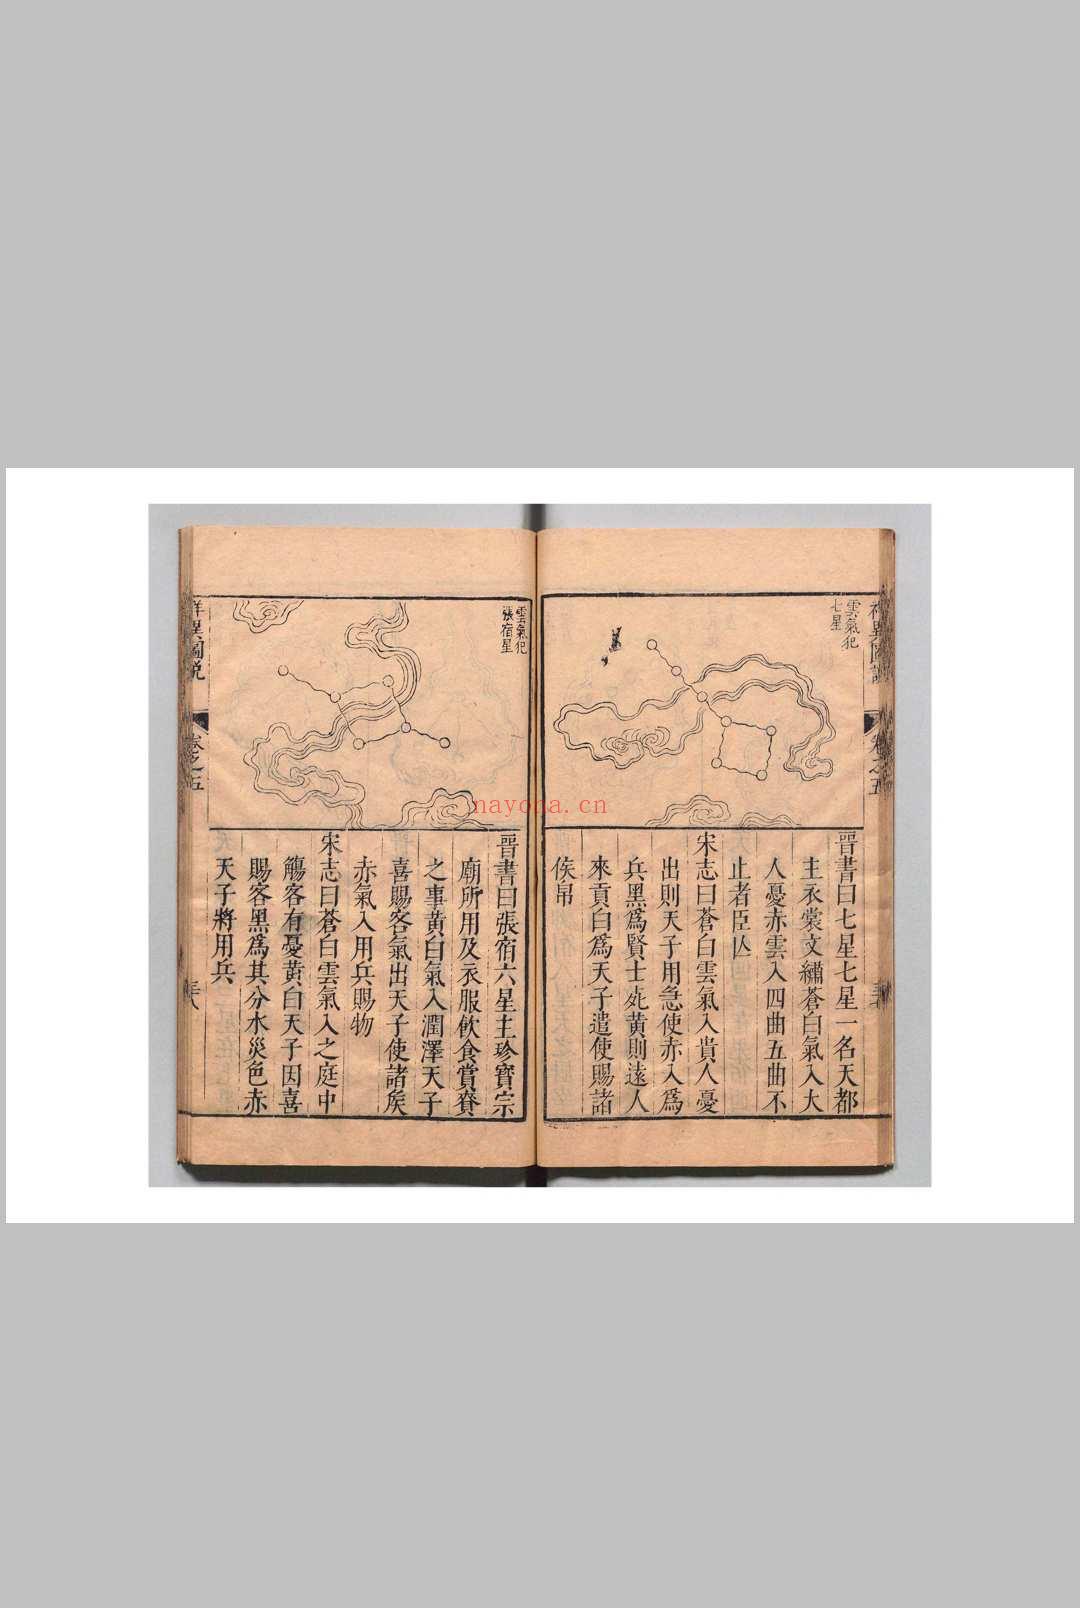 雲氣犯
七星
晉書曰七星七星一名天都
主衣裳文繡蒼白氣入大
人憂赤雲入四曲五曲不
止者臣亾
宋志曰蒼白雲氣入貴人憂
出則天子用急使赤入爲
兵黑爲賢士死黄則遠人
來貢白爲天子遣使賜諸
侯帛
雲氣犯
張宿星
晉書曰張宿六星主珍寶宗
廟所用及衣服飲食賞賚
之事黄白氣入潤澤天子
喜賜客氣出天子使諸矦
赤氣入用兵賜物
宋志曰蒼白雲氣入之庭中
觴客有憂黄白天子因喜
賜客黑爲其分水災色赤
天子將用兵
祥異圖説
卷之五
三六
nayona.cn